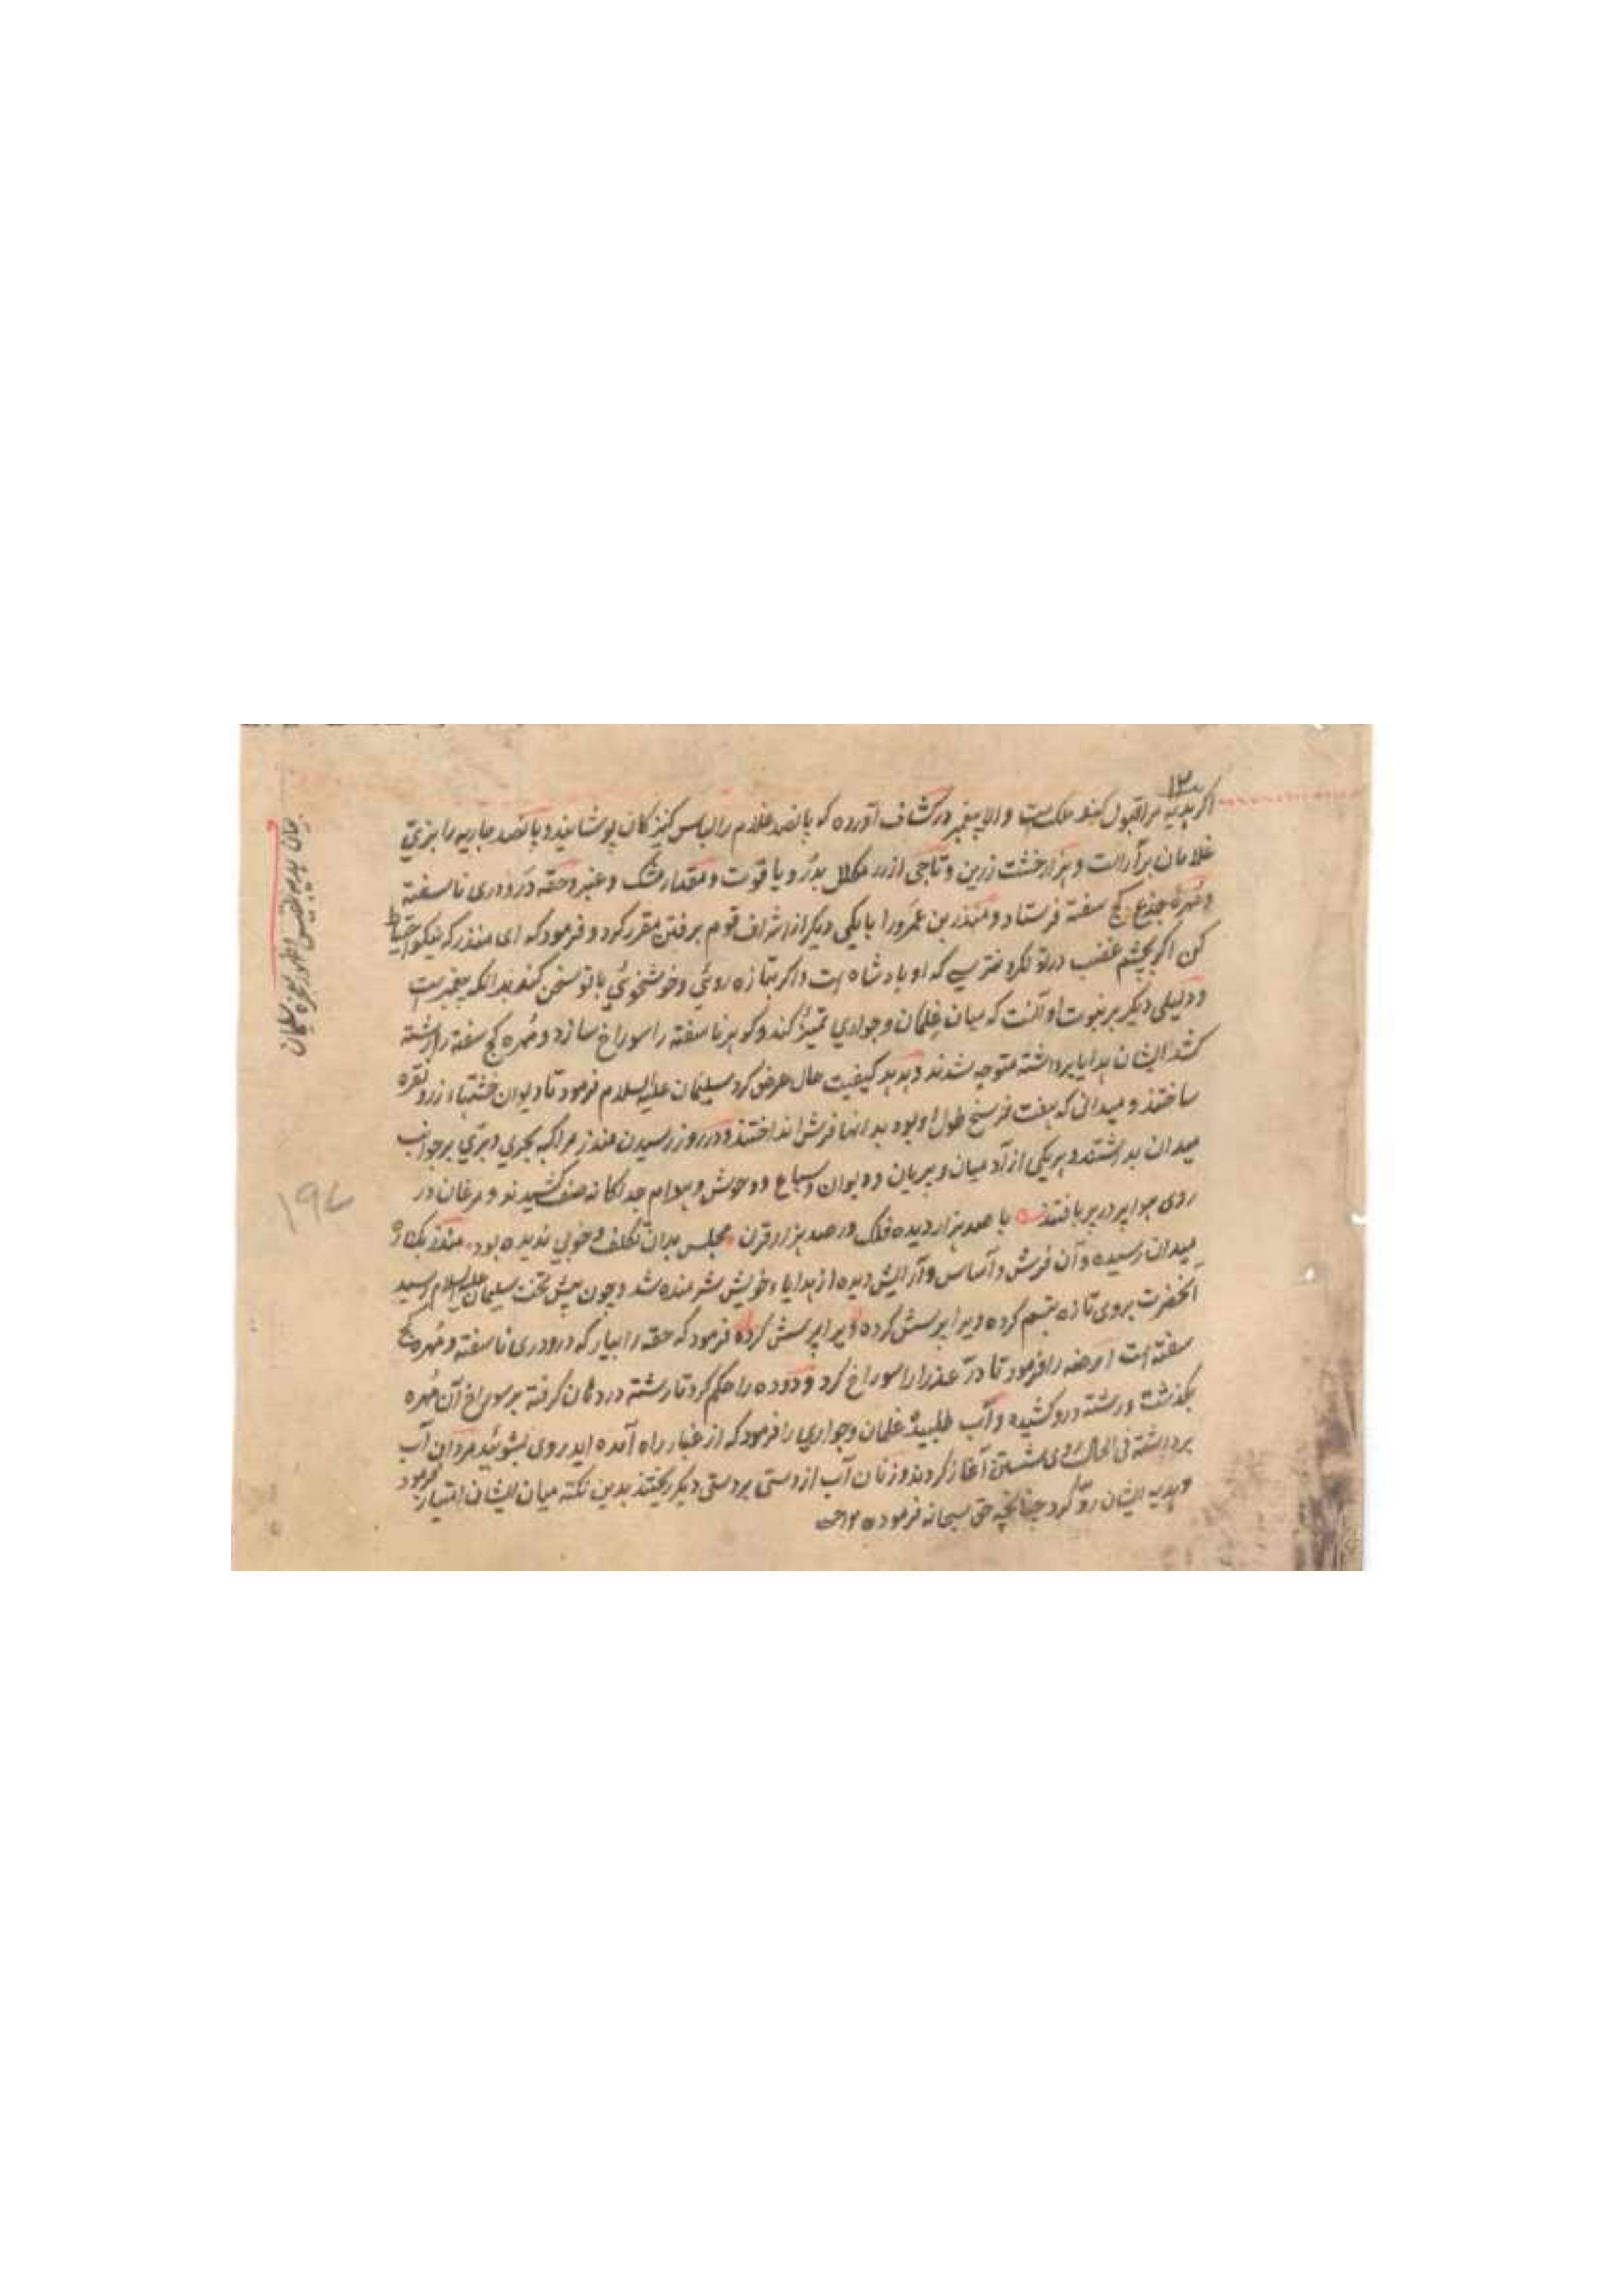 ۱۳
اگر هدیه مرا قبول کند ملک است والا پیغمبر در کشاف آورده که پانصد غلام را لباس کنیزکان پوشانیدو پانصد جاریه را بزیّ
غلامان برآراست و هزار خشت زرین و تاجی از زر مکلل بدُر و یاقوت و مقدار مشک و عنبر و حقه در و دری ناسفته
و مُهرهٔ جذع کج سفته فرستاد و منذر بن عمرو را با یکی دیگر از اشراف قوم برفتن مقرر کرد و فرمود که ای منذر که نیکو احتیاط
کن اگر بچشم غضب در تو نگرد نترسی که او پادشاه است واگر بتازه روئی و خوشخوئی با تو سخن کند بدانکه پیغمبرست
و دلیلی دیگر بر نبوت او آنست که میان غلمان و جواری تمیز کند و گوهر ناسفته را سوراخ سازد و مهره کج سفته را رشته
کشد ایشان هدایا برداشته متوجه شدند و هدهد کیفیت حال عرض کرد سلیمان علیه السلام فرمود تا دیوان خشتهاء از زر و نقره
ساختند و میدانی که هفت فرسنخ طول او بود بدانها فرش انداختند و در روز رسیدن منذر مراکب بحری و بری بر جوانب
میدان بداشتند و هر یکی از آدمیان و پریان و دیوان و سباع و وحوش و هوام جداگانه صف کشیدند و مرغان در
روی هوا پر در پر بافتند با صد هزار دیده فلک در صد هزار قرن مجلس بدان تکلف و خوبی ندیده بود منذر بکنار
میدان رسیده و آن فرش و آساس و آرایش دیده از هدایاء خویش شرمنده شد و چون پیش تخت سلیمان علیه السلام رسید
آنحضرت بروی تازه تبسم کرده ویرا پرسش کرده ویرا پرسش کرده فرمود که حقه را بیار که در و دری ناسفته و مُهره کج
سفته است ارضه را فرمود تا درّ عذرا را سوراخ کرد و دوده را حکم کرد تا رشته در دهان گرفته بر سوراخ آن مُهره
بگذشت و رشته در و کشیده و آب طلبیده غلمان و جواری را فرمود که از غبار راه آمده اید روی بشوئید مردان آب
برداشته فی الحال روی شستن آغاز کردند و زنان آب از دستی بر دستی دیگر ریختند بدین نکته میان ایشان امتیاز فرمود
و هدیه ایشان ردّ کرد چنانچه حق سبحانه فرموده
بیان هدیه بلقیس سلیمان
۱۹۷